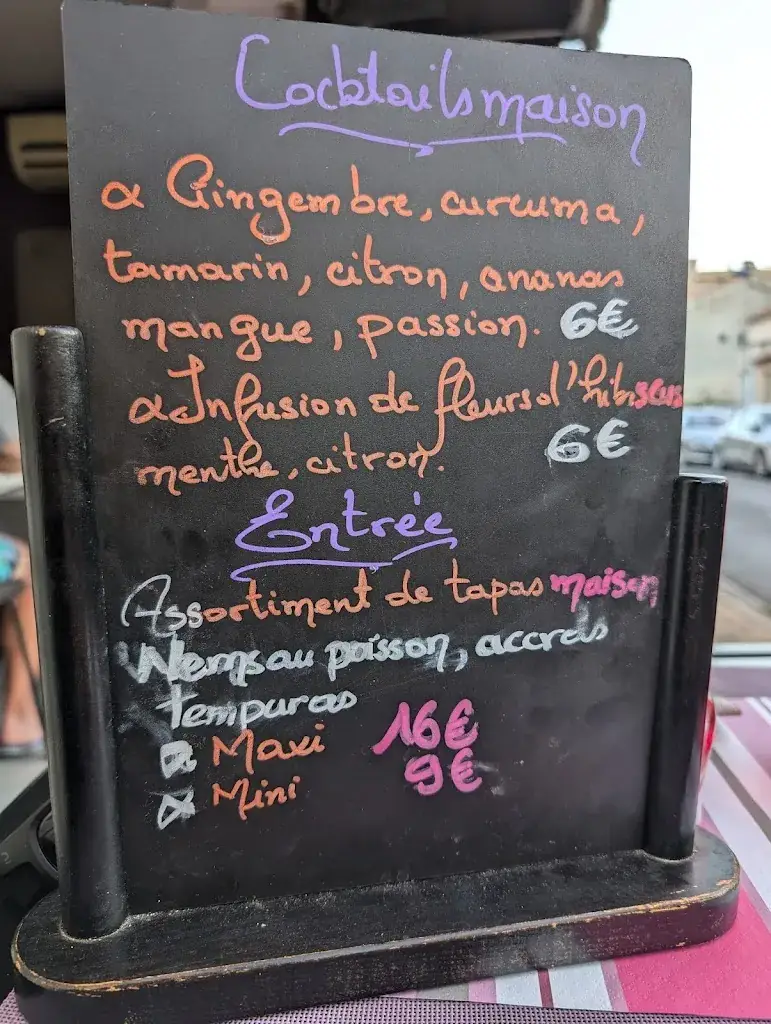 Cocktails maison
α Gingembre, curcuma,
tamarin, citron, ananas
mangue, passion. 6€
α Infusion de fleurs d'hibiscus
menthe, citron. 6€
Entrée
Assortiment de tapas maison
Nems au poisson, accras
tempuras
α Maxi 16€
α Mini 9€